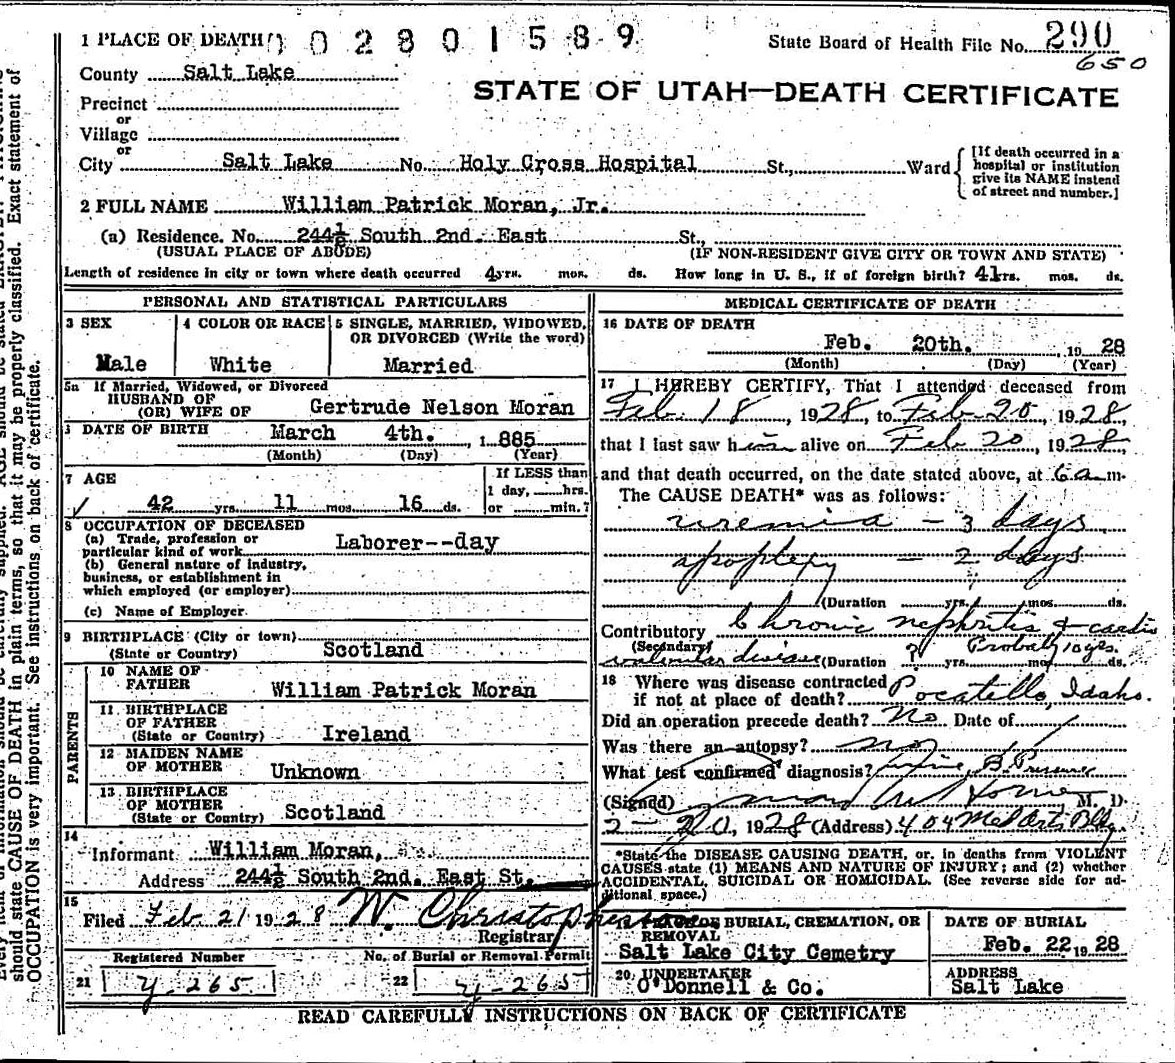 1 PLACE OF DEATH 0 0 2 8 0 1 5 8 9
State Board of Health File No. 290
650
County Salt Lake
STATE OF UTAH—DEATH CERTIFICATE
Precinct
or
Village
or
City Salt Lake No. Holy Cross Hospital St., Ward
[If death occurred in a
hospital or institution
give its NAME instead
of street and number.]
2 FULL NAME William Patrick Moran, Jr.
(a) Residence. No. 244½ South 2nd. East St.,
(USUAL PLACE OF ABODE) (IF NON-RESIDENT GIVE CITY OR TOWN AND STATE)
Length of residence in city or town where death occurred 4 yrs. mos. ds. How long in U. S., if of foreign birth? 41 rs. mos. ds.
PERSONAL AND STATISTICAL PARTICULARS
3 SEX
Male
4 COLOR OR RACE
White
5 SINGLE, MARRIED, WIDOWED,
OR DIVORCED (Write the word)
Married
5a If Married, Widowed, or Divorced
HUSBAND OF
(OR) WIFE OF Gertrude Nelson Moran
DATE OF BIRTH March 4th. , 1 885
(Month) (Day) (Year)
7 AGE
42 yrs. 11 mos. 16 ds.
If LESS than
1 day, hrs.
or min.?
8 OCCUPATION OF DECEASED
(a) Trade, profession or
particular kind of work Laborer--day
(b) General nature of industry,
business, or establishment in
which employed (or employer)
(c) Name of Employer
9 BIRTHPLACE (City or town)
(State or Country) Scotland
PARENTS
10 NAME OF
FATHER William Patrick Moran
11 BIRTHPLACE
OF FATHER
(State or Country) Ireland
12 MAIDEN NAME
OF MOTHER Unknown
13 BIRTHPLACE
OF MOTHER
(State or Country) Scotland
14
Informant William Moran,
Address 244½ South 2nd. East St.
15
Filed Feb 21 1928 W. Christopherson
Registrar
Registered Number
21 y-265
No. of Burial or Removal Permit
22 y-265
MEDICAL CERTIFICATE OF DEATH
16 DATE OF DEATH
Feb. 20th. , 19 28
(Month) (Day) (Year)
17 I HEREBY CERTIFY, That I attended deceased from
Feb. 18, 1928, to Feb 20, 1928
that I last saw him alive on Feb 20, 1928,
and that death occurred, on the date stated above, at 6 a m.
The CAUSE DEATH* was as follows:
uremia - 3 days
apoplexy - 2 days
(Duration yrs. mos. ds.
Contributory Chronic nephritis & cardio
(Secondary) valvular disease (Duration Probably 10 yrs. yrs. mos. ds.
18 Where was disease contracted
if not at place of death? Pocatello, Idaho.
Did an operation precede death? No Date of
Was there an autopsy? no
What test confirmed diagnosis? urine B. Pressure
(Signed) M. D.
2-20, 1928 (Address) 404 Med Arts Bldg.
*State the DISEASE CAUSING DEATH, or, in deaths from VIOLENT
CAUSES state (1) MEANS AND NATURE OF INJURY; and (2) whether
ACCIDENTAL, SUICIDAL OR HOMICIDAL. (See reverse side for ad-
ditional space.)
PLACE OF BURIAL, CREMATION, OR
REMOVAL
Salt Lake City Cemetry
DATE OF BURIAL
Feb. 22, 19 28
20 UNDERTAKER
O'Donnell & Co.
ADDRESS
Salt Lake
READ CAREFULLY INSTRUCTIONS ON BACK OF CERTIFICATE
should state CAUSE OF DEATH in plain terms, so that it may be properly classified. Exact statement of
OCCUPATION is very important. See instructions on back of certificate.